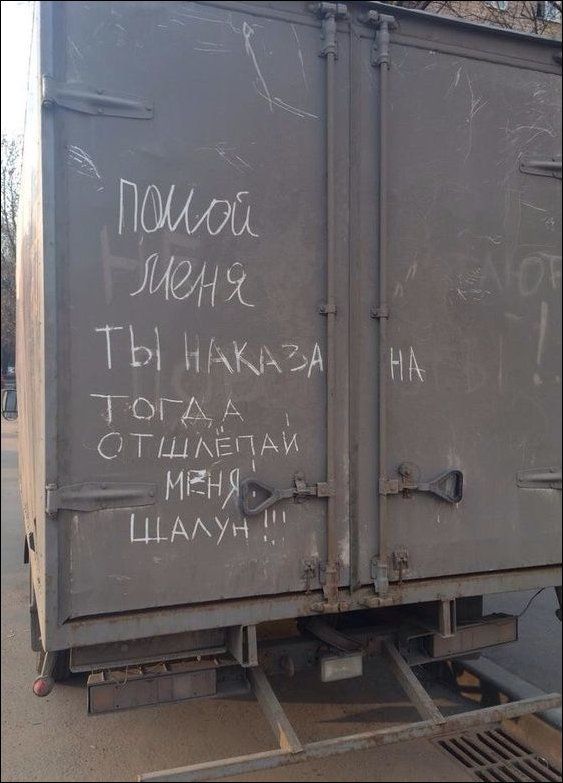 помой
меня
ТЫ НАКАЗАНА
ТОГДА
ОТШЛЁПАЙ
МЕНЯ
ШАЛУН!!!